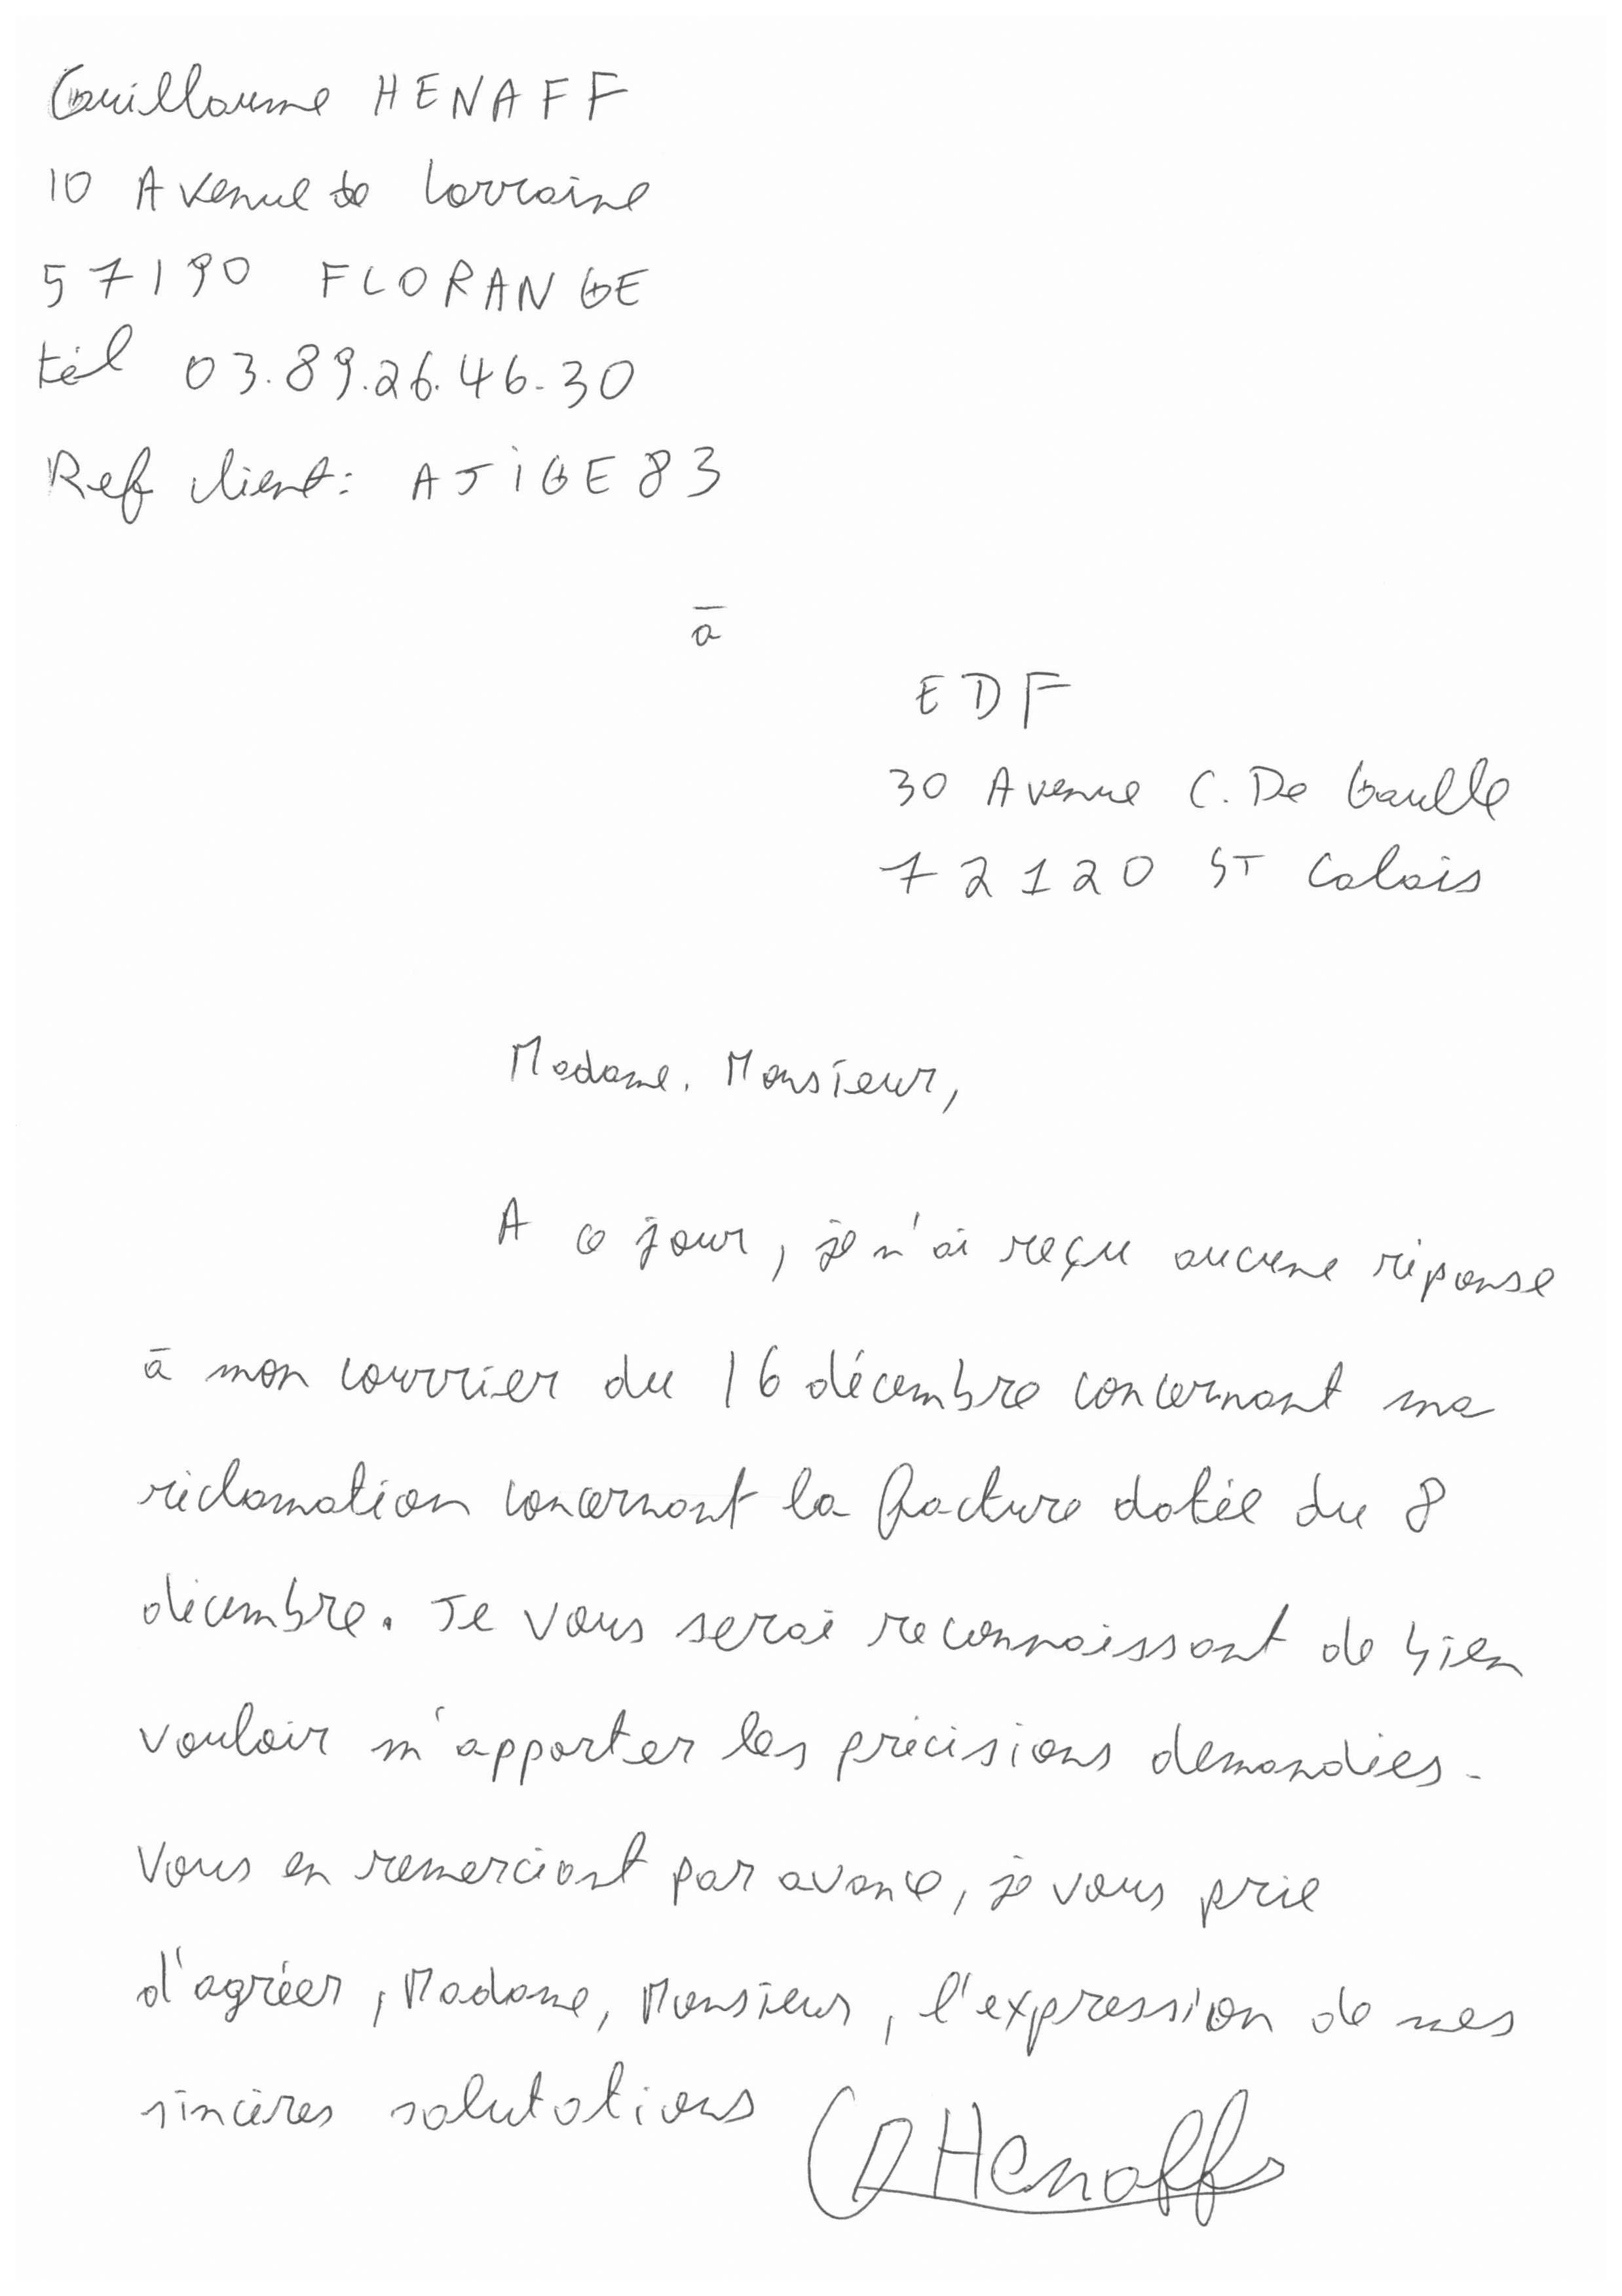 Guillaume HENAFF
10 Avenue de Lorraine
57190 FLORANGE
tél 03.89.26.46.30
Ref client: AJIGE83
à
EDF
30 Avenue C. De Gaulle
72120 ST Calais
Madame, Monsieur,
A ce jour, je n'ai reçu aucune réponse
à mon courrier du 16 décembre concernant ma
réclamation concernant la facture datée du 8
décembre. Je vous serai reconnaissant de bien
vouloir m'apporter les précisions demandées.
Vous en remerciant par avance, je vous prie
d'agréer, Madame, Monsieur, l'expression de mes
sincères salutations
GHenaff